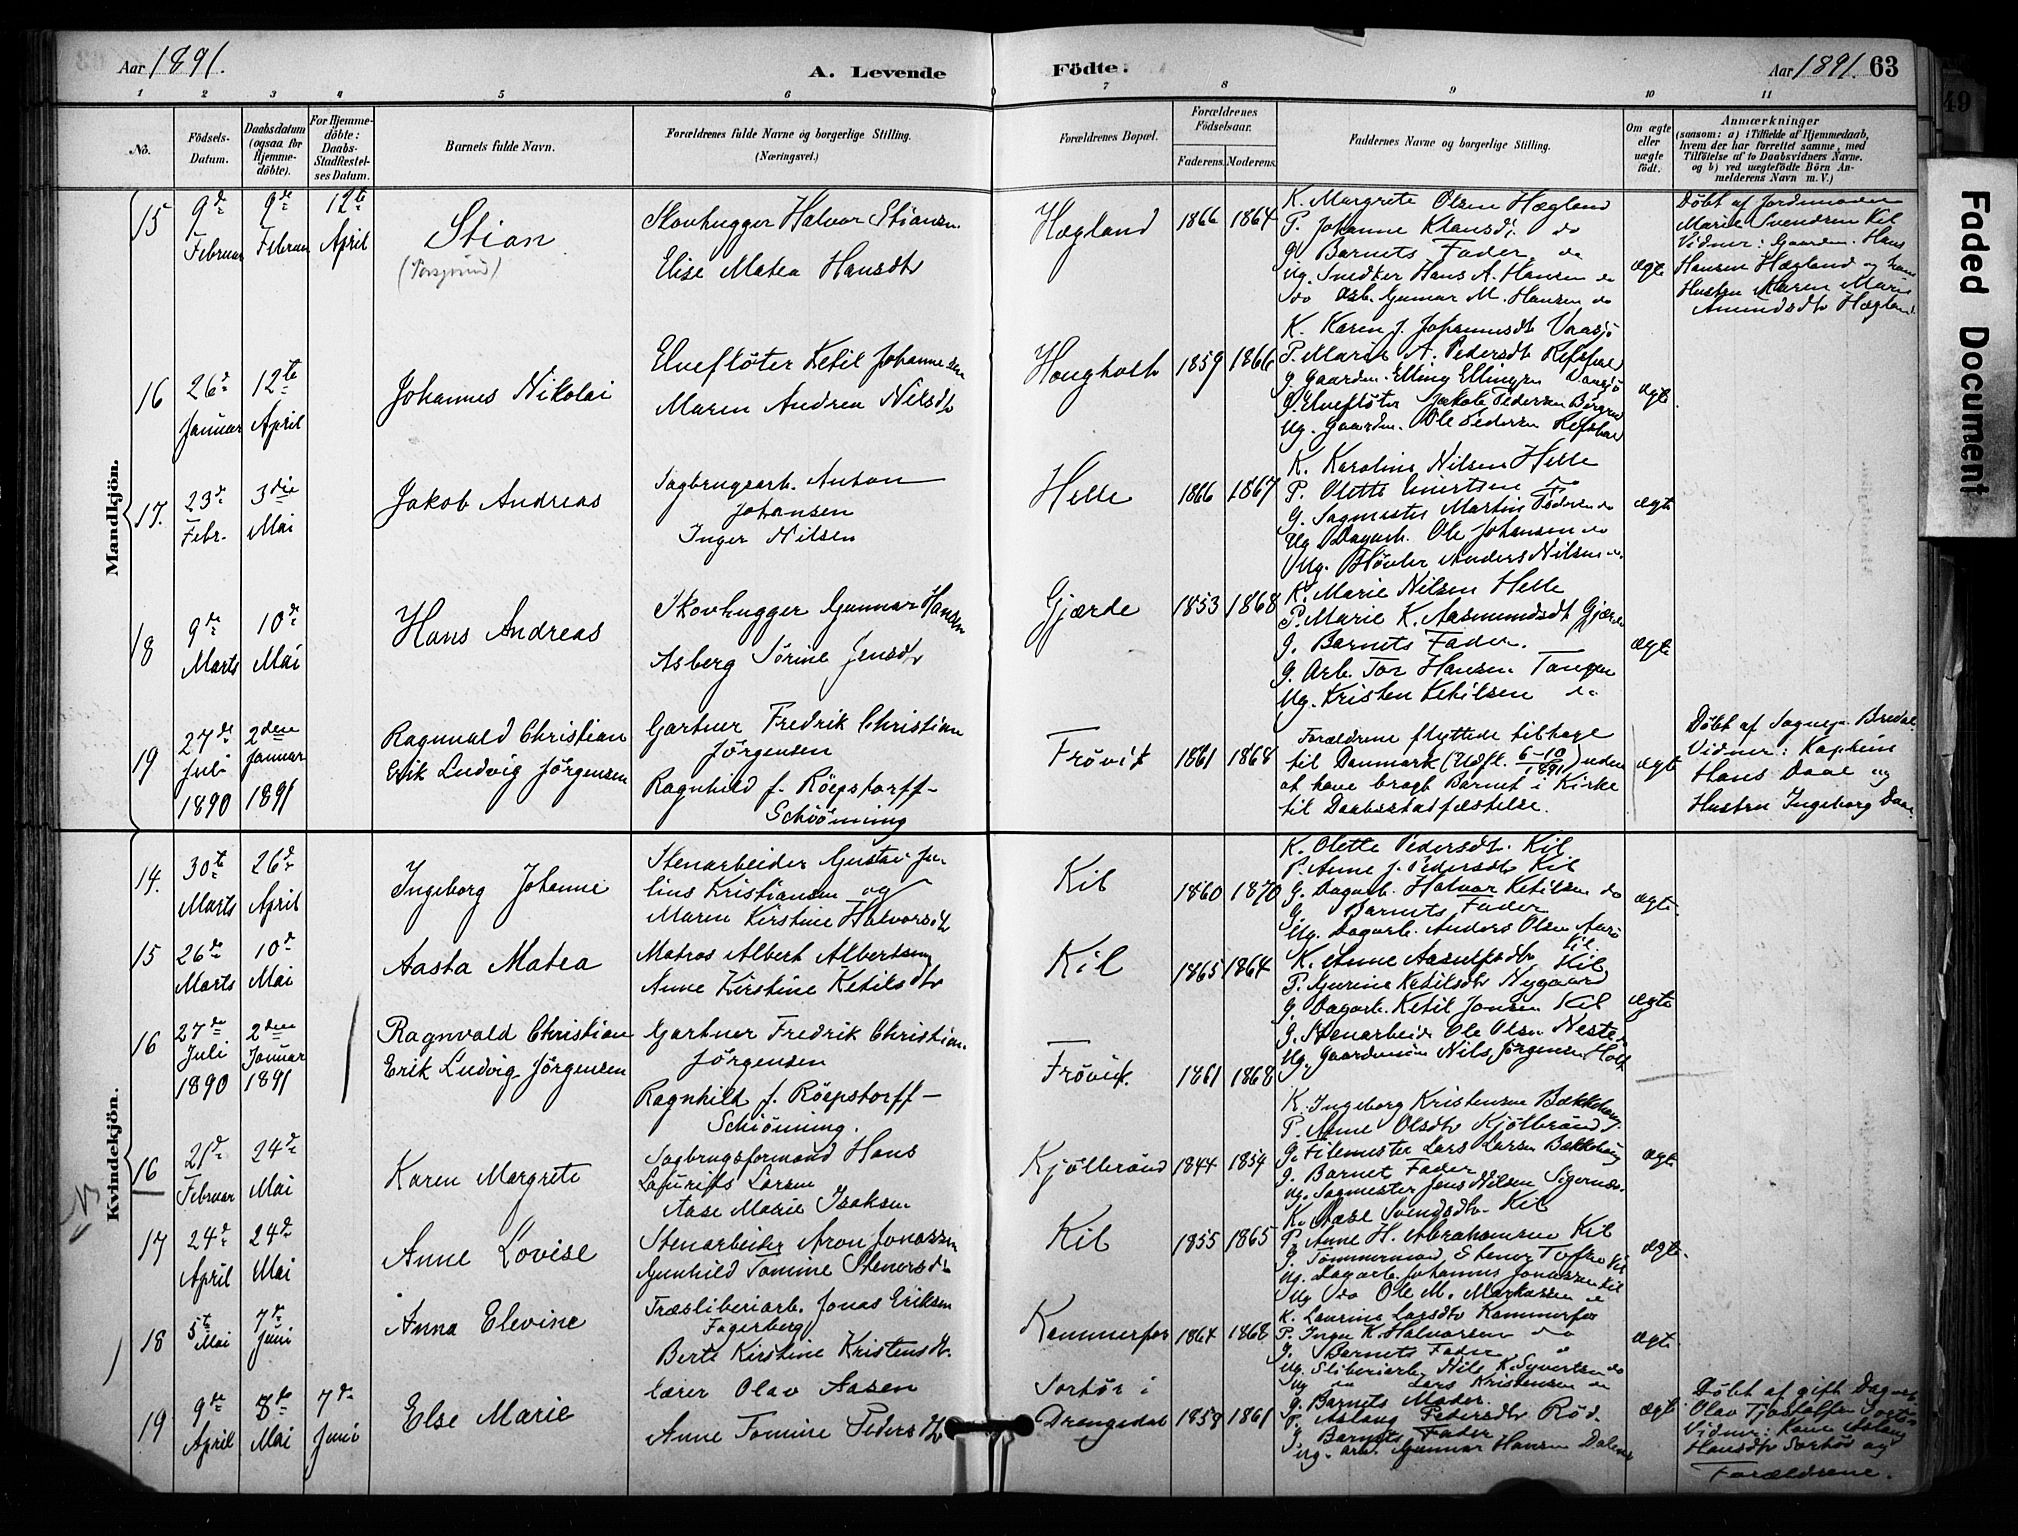 Aar 1891.
A. Levende
Födte.
Aar 1891. 63
1 2 3 4 5 6 7 8 9 10 11
No.
Födsels-Datum.
Daabsdatum (ogsaa for Hjemmedöbte).
For Hjemmedöbte: Daabs-Stadfæstelses Datum.
Barnets fulde Navn.
Forældrenes fulde Navne og borgerlige Stilling.
(Næringsvei.)
Forældrenes Bopæl.
Forældrenes Födselsaar.
Faderens. Moderens.
Faddernes Navne og borgerlige Stilling.
Om ægte eller uægte födt.
Anmærkninger
(saasom: a) i Tilfælde af Hjemmedaab, hvem der har forrettet samme, med Tilföielse af to Daabsvidners Navne. og b) ved uegtefödte Börn Anmelderens Navn m. V.)
Faded Document
49
Mandkjön.
15
9de Februar
9de Februar
12te April
Stian
(Porsgrund)
Skovhugger Halvor Stiansen
Elise Matea Hansdtr
Hægland
1866 1864
K. Margrete Olsen Hægland
P. Johanne Klausd. do
G. Barnets Fader do
Ug. Snedker Hans A. Hansen do
do Arb. Gunnar M. Hansen do
ægte
Döbt af Jordemoder
Marie Svendsen Kil
Vidner: Gaardm. Hans
Hansen Hægland og hans
Hustru Maren Marie
Amundsdtr Hægland
16
26de Januar
12te April
Johannes Nikolai
Elveflöter Ketil Johannesen
Maren Andrea Nilsdtr
Hougholt
1859 1866
K. Karen J. Johannesdtr Vaasjö
P. Maria A. Pedersdtr Refshal
G. Gaardm. Elling Ellingsen Vaasjö
G. Elveflöter Jakob Pedersen
Ug. Gaardm. Ole Pedersen Refshal
ægte
17.
23de Febr.
3die Mai
Jakob Andreas
Sagbrugsarb. Anton
Johansen
Inger Nilsen
Helle
1866 1867
K. Karoline Nilsen Helle
P. Olette Einertsen do
G. Sagmester Martin Pedersen do
Ug. Dagarb. Ole Johansen do
Ug. Hövler Anders Nilsen do
ægte
18
9de Marts
10de Mai
Hans Andreas
Skovhugger Gunnar Hansen
Asberg Sörine Jensdtr
Gjærde
1853 1868
K. Marie Nilsen Helle
P. Marie K. Aasmundsdt Gjærde
G. Barnets Fader.
G. Arb. Tor Hansen Tangen
Ug. Kristen Ketilsen do
ægte
19
27de Juli 1890
2den Januar 1891
Ragnvald Christian
Erik Ludvig Jörgensen
Gartner Fredrik Christian
Jörgensen
Ragnhild f. Röepstorff-
Schiönning
Frövik
1861 1868
Forældrene flyttede tilbage
til Danmark (Udfl. 6-10 1891) uden
at have bragt Barnet i Kirke
til Daabsstadfæstelse.
ægte
Döbt af Sognepr. Bredal.
Vidner: Kaptein
Hans Daae og
Hustru Ingeborg Daae
Kvindekjön.
14.
30te Marts
26de April
Ingeborg Johanne
Stenarbeider Gustav Ju-
lius Kristiansen og
Maren Kirstine Halvorsdtr
Kil
1860 1870
K. Olette Pedersdtr Kil
P. Anne J. Pedersdtr Kil
G. Dagarb. Halvor Ketilsen do
G. Barnets Fader
Ug. Dagarb. Anders Olsen Aarö
Kil.
ægte.
15
26de Marts
10de Mai
Aasta Matea
Matros Albert Albertsen
Anne Kirstine Ketilsdtr
Kil
1865 1864
K. Anne Aasulfsdtr Kil
P. Gurine Ketilsdtr Nygaard
G. Dagarb. Ketil Jonsen Kil
G. Stenarbeid. Ole Olsen Neste
Ug. Gaardmand Nils Jörgensen Holt
ægte
16
27de Juli 1890
2den Januar 1891
Ragnvald Christian
Erik Ludvig Jörgensen
Gartner Fredrik Christian
Jörgensen
Ragnhild f. Röepstorff-
Schiönning.
Frövik.
1861 1868
16
21de Februar
24de Mai
Karen Margrete
Sagbrugsformand Hans
Laurits Larsen
Aase Marie Isaksen
Kjölbrönd
1844 1854
K. Ingeborg Kristensen Bækkehaug
P. Anne Olsdtr Kjölbrönd
G. Filemester Lars Larsen Bækkehaug
G. Barnets Fader
Ug. Sagmester Jens Nilsen
ægte
17
24de April
24de Mai
Anne Lovise
Stenarbeider Aron Jonassen
Gunhild Tomine Stenersdtr
Kil
1855 1865
K. Aase Svendsdtr Kil
P. Anne H. Abrahamsen Kil
G. Tömmermand Stener Kil
Ug. Dagarb. Johannes Jonassen Kil
Ug do Ole M. Markussen do
ægte.
18
5te Mai
7de Juni
Anna Elevine
Træsliberiarb. Jonas Eriksen
Fagerberg
Berte Kirstine Kristensdtr.
Kammerfos
1864 1868
K. Laurine Larsdtr Kammerfos
P. Inger K. Halvorsen do
G. Barnets Fader
Ug. Sliberiarb. Nils K. Syvertsen do
Ug do Lars Kristensen do
ægte.
19
9de April
8de Mai
7de Juni
Else Marie
Lærer Olav Aasen
Anne Tomine Pedersdtr
Tortöi i
Drangedal
1859 1861
G. Barnets Moder.
P. Aslaug Pedersdtr Röd.
G. Barnets Fader
Ug. Arb. Gunnar Hansen Dalene
ægte
Döbt af gift Dagarb.
Olav
Vidner: Kone Aslaug
Hansdtr og
Forældrene.